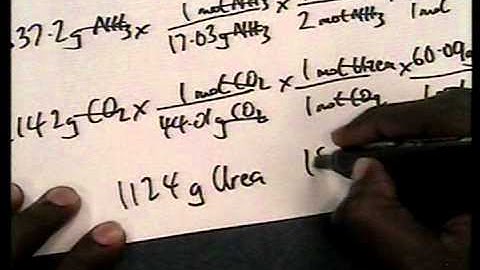 .37.2g NH3 x 1 mol NH3 / 17.03g NH3 x / 2 mol NH3 / 1 mol
1142g CO2 x 1 mol CO2 / 44.01g CO2 x 1 mol Urea / 1 mol CO2 x 60.09g
1124 g Urea